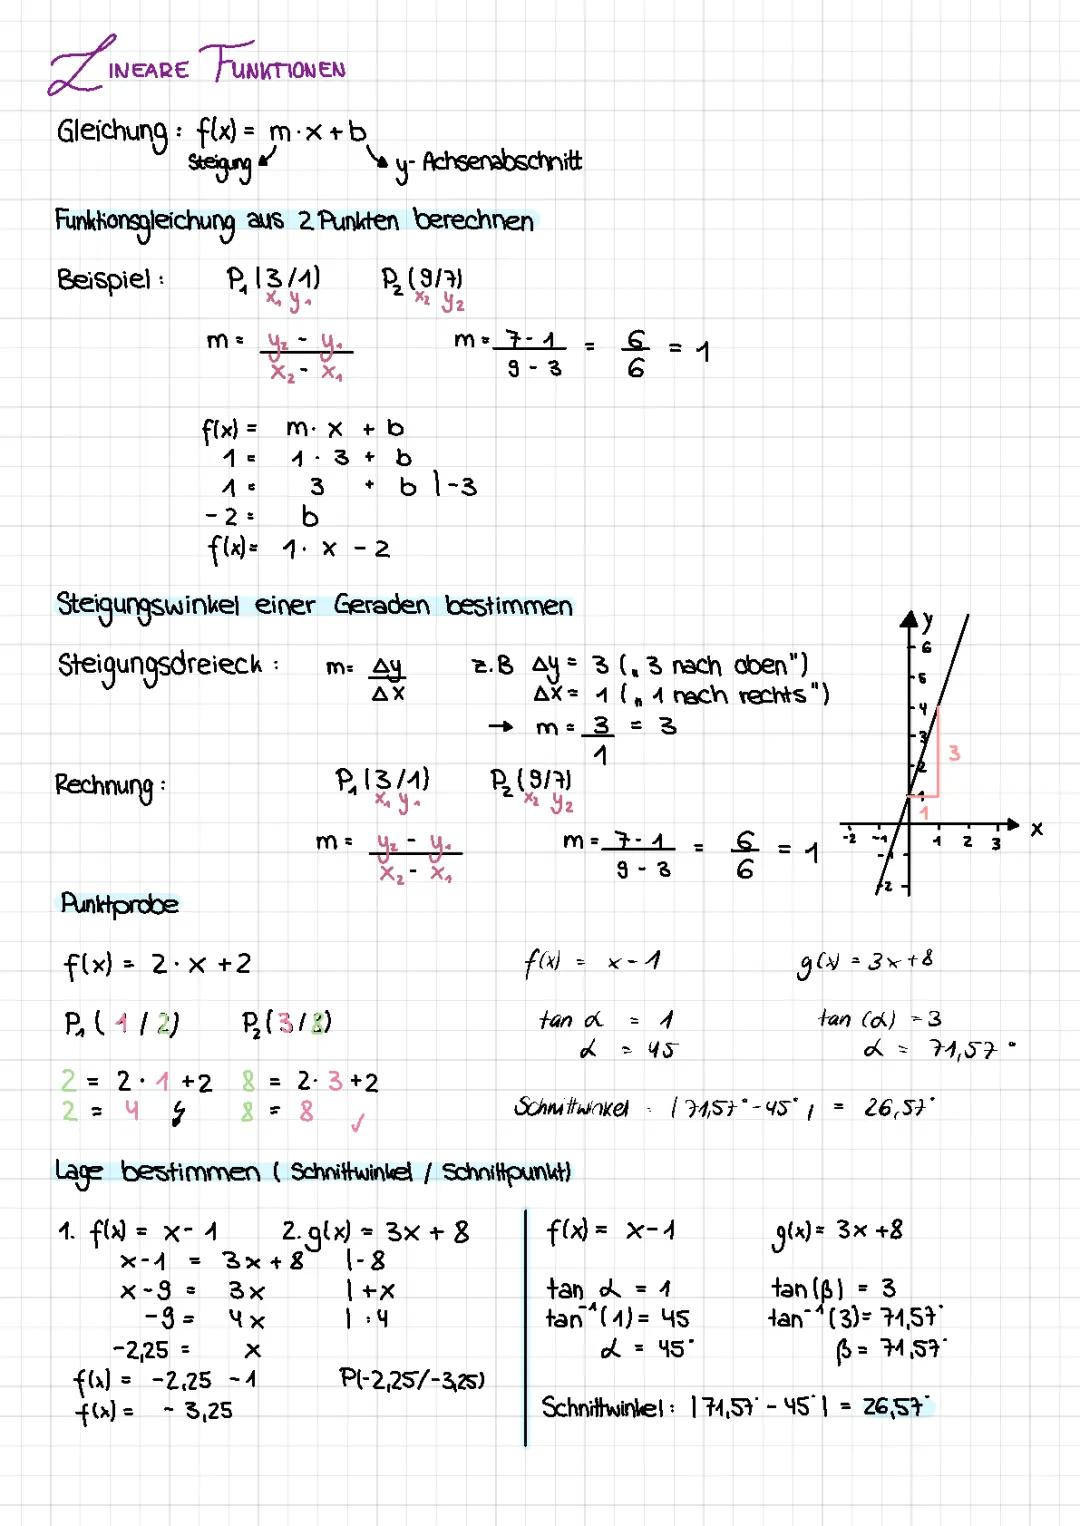 LINEARE FUNKTIONEN
Gleichung: f(x) = m·x+b
Steigung y-Achsenabschnitt
Funktionsgleichung aus 2 Punkten berechnen
Beispiel: P₁(3/1) P₂(9/7)
x₁ y₁ x₂ y₂
m = (y₂ - y₁)/(x₂ - x₁) m = (7-1)/(9-3) = 6/6 = 1
f(x) = m·x + b
1 = 1·3 + b
1 = 3 + b |-3
-2 = b
f(x) = 1·x - 2
Steigungswinkel einer Geraden bestimmen
Steigungsdreieck: m = Δy/Δx z.B Δy = 3 („3 nach oben")
Δx = 1 („1 nach rechts")
→ m = 3/1 = 3
y
6
5
4
3
2
1
-2 -1 1 2 3 x
-1
-2
3
1
Rechnung: P₁(3/1) P₂(9/7)
x₁ y₁ x₂ y₂
m = (y₂ - y₁)/(x₂ - x₁) m = (7-1)/(9-3) = 6/6 = 1
Punktprobe
f(x) = 2·x+2
P₁(1/2) P₂(3/8)
2 = 2·1+2 8 = 2·3+2
2 = 4 ↯ 8 = 8 ✓
f(x) = x-1 g(x) = 3x+8
tan α = 1 tan (α) = 3
α = 45 α = 71,57°
Schnittwinkel: |71,57°-45°| = 26,57°
Lage bestimmen (Schnittwinkel / Schnittpunkt)
1. f(x) = x-1 2. g(x) = 3x+8
x-1 = 3x+8 |-8
x-9 = 3x |+x
-9 = 4x |:4
-2,25 = x
f(x) = -2,25 -1 P(-2,25/-3,25)
f(x) = -3,25
f(x) = x-1 g(x) = 3x+8
tan α = 1 tan(β) = 3
tan⁻¹(1) = 45 tan⁻¹(3) = 71,57°
α = 45° β = 71,57°
Schnittwinkel: |71,57°-45°| = 26,57°